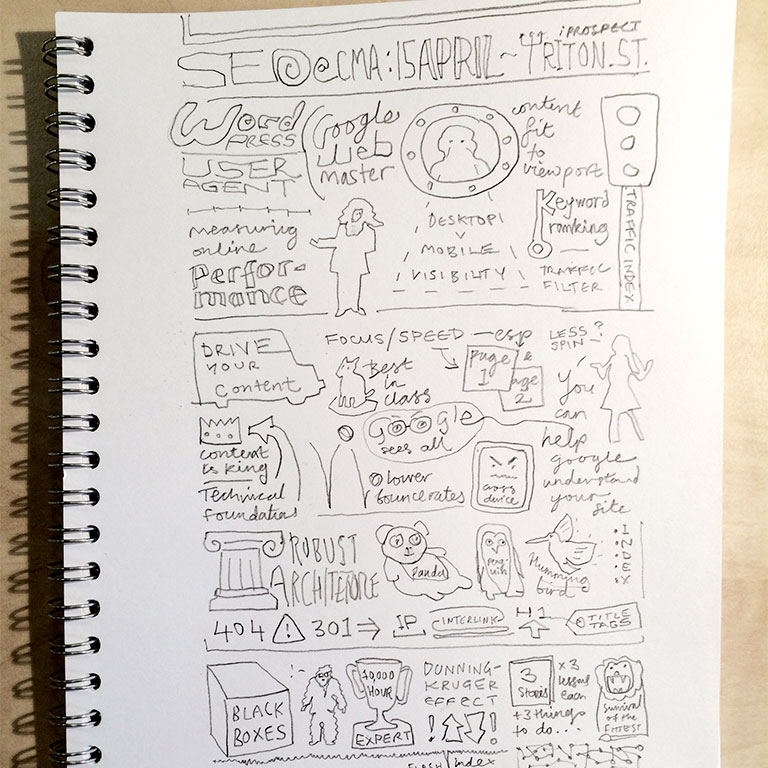 iPROSPECT
SEO@CMA:15APRIL~TRITON.ST.
WordPRESS
USER
AGENT
Google
Web
master
content
fit
to
viewport
measuring
online
Perfor-
mance
DESKTOP
V
MOBILE
VISIBILITY
Keyword
ranking
TRAFFIC
FILTER
TRAFFIC INDEX
DRIVE
YOUR
Content
FOCUS/SPEED - esp
Best
in
class
page
1
&
page
2
LESS?
SPIN-
You
can
help
google
understand
your
site
content
is king
Technical
foundations
Google
sees all
lower
bounce rates
device
ROBUST
ARCHITECTURE
Panda
Penguin
Humming
bird
INDEX
404
301
IP
INTERLINK
H1
TITLE
TAGS
BLACK
BOXES
10,000
HOUR
EXPERT
DUNNING-
KRUGER
EFFECT
!!
3
Stories
x3
lessons
each
+3 things
to do...
Survival
of the
FITTEST
FLASH
index